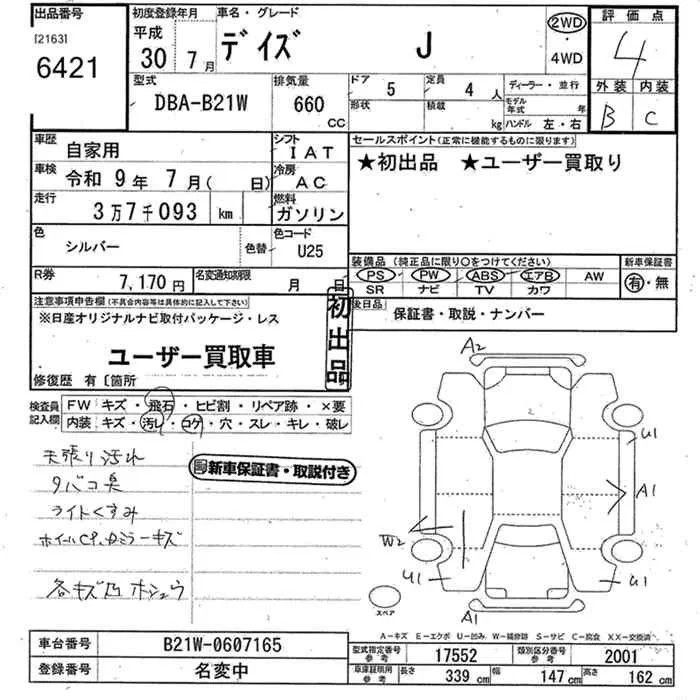 出品番号 初度登録年月 車名・グレード 評価点
[2163] 平成 デイズ J ②WD 4
6421 30年 7月 4WD 外装 内装
型式 排気量 ドア 5 定員 4人 ディーラー・並行 B C
DBA-B21W 660 CC 形状 積載 kg モデル年式 年 ハンドル 左・右
車歴 自家用 シフト IAT セールスポイント(正常に機能するものに限ります)
車検 令和 9年 7月( 日) 冷房 AC ★初出品 ★ユーザー買取り
走行 3万7千093 km 燃料 ガソリン
色 シルバー 色替 色コード U25
装備品 (純正品に限り○をつけてください) 新車保証書
PS PW ABS エアB AW 有・無
SR ナビ TV カワ
R券 7,170円 名変通知期限 月 日
後日品 保証書・取説・ナンバー
注意事項申告欄(不具合内容等は具体的に記入して下さい)
※日産オリジナルナビ取付パッケージ・レス
初出品
ユーザー買取車
修復歴 有〔箇所
検査員記入欄 FW キズ・飛石・ヒビ割・リペア跡・×要
内装 キズ・汚レ・コゲ・穴・スレ・キレ・破レ
天張り汚れ
タバコ臭
新車保証書・取説付き
ライトくすみ
ホイルCP、ドミラーキズ
各キズ凹 ホシュウ
A2
U1
A1
W2
U1
U1
A1
スペア
A-キズ E-エクボ U-凹み W-補修跡 S-サビ C-腐食 XX-交換済
車台番号 B21W-0607165 型式指定番号 参考 17552 類別区分番号 参考 2001
登録番号 名変中 車庫証明用 参考 長さ 339 cm 幅 147 cm 高さ 162 cm